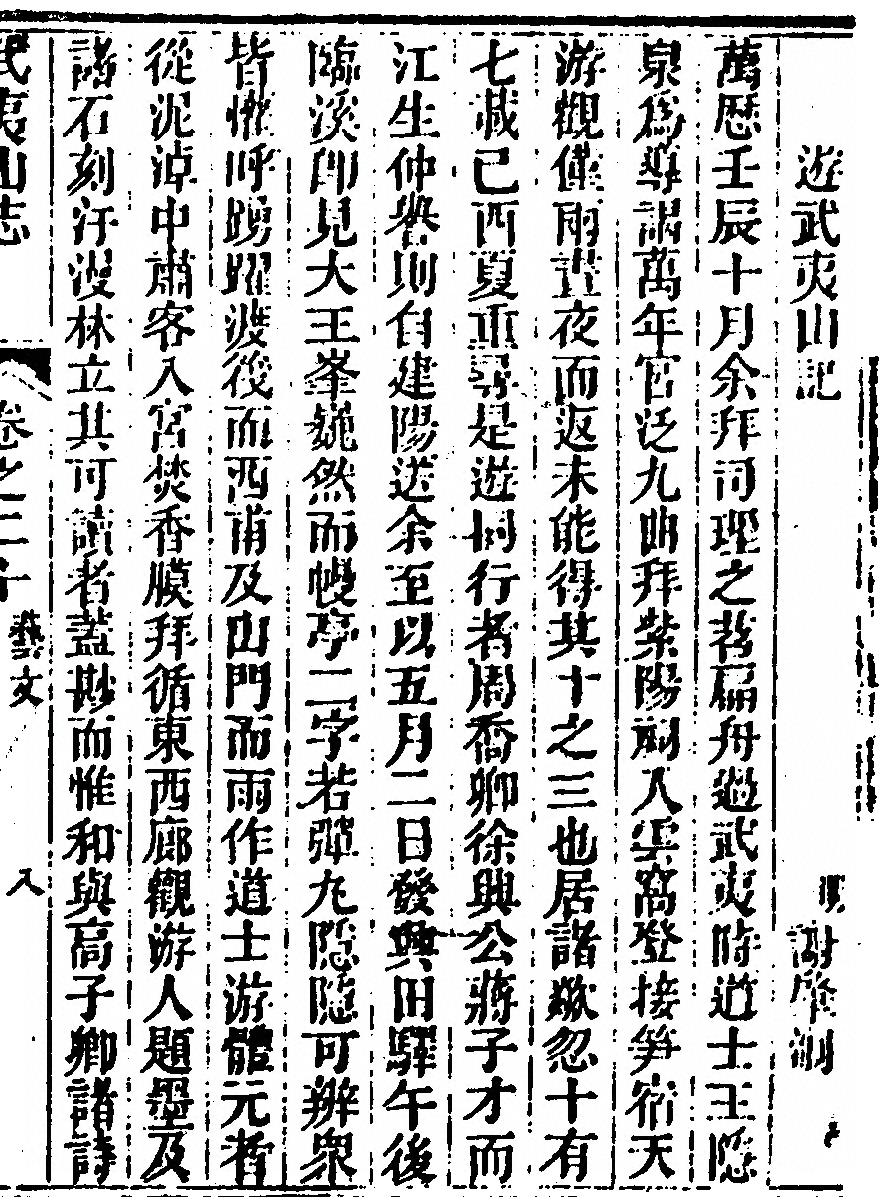 遊武夷山記
明 謝肇淛
萬歷壬辰十月余拜司理之若扁舟過武夷時道士王隱
泉為導謁萬年宮泛九曲拜紫陽祠入雲窩登接笋宿天
游觀僅兩晝夜而返未能得其十之三也居諸欻忽十有
七載己酉夏重尋是遊同行者周喬卿徐興公蔣子才而
江生仲譽則自建陽送余至以五月二日發興田驛午後
臨溪即見大王峯巍然而幔亭二字若彈丸隱隱可辨眾
皆懽呼踴躍渡後而西甫及山門而雨作道士游體元者
從泥淖中肅客入宮焚香膜拜循東西廊觀游人題墨及
諸石刻汙漫林立其可讀者蓋尠而惟和與高子卿諸詩
武夷山志
卷之二十 藝文
八